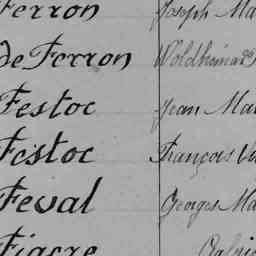 Ferron Joseph Ma
de Ferron
Festoc Jean Ma
Festoc François
Feval Georges Ma
Fiacre